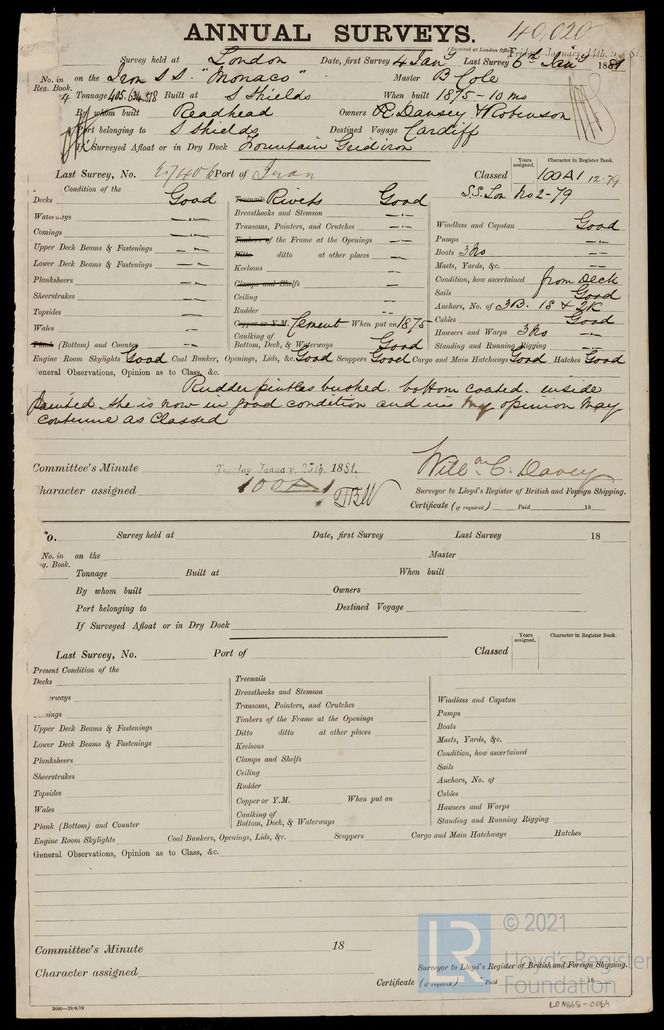 ANNUAL SURVEYS.
40,020
(Received at London Office Friday January 14th. 1881.
Survey held at London Date, first Survey 4 Jany Last Survey 6th Jany 1881
No. in Reg. Book. on the Iron S.S. "Monaco" Master B Cole
Tonnage 405.634.518 Built at S Shields When built 1875-10 mo
By whom built Readhead Owners R. Davsey & Robinson
Port belonging to S Shields Destined Voyage Cardiff
If Surveyed Afloat or in Dry Dock Fountain Gridiron
Years assigned. Character in Register Book.
Last Survey, No. Port of Classed 100 A1 12-79
S.S. Lon No 2-79
Condition of the
Decks Good
Waterways —
Comings —
Upper Deck Beams & Fastenings —
Lower Deck Beams & Fastenings —
Planksheers —
Sheerstrakes —
Topsides —
Wales —
Plank (Bottom) and Counter —
Treenails Rivets Good
Breasthooks and Stemson —
Transoms, Pointers, and Crutches —
Timbers of the Frame at the Openings —
Ditto ditto at other places —
Keelsons —
Clamps and Shelfs —
Ceiling —
Rudder —
Copper or Y.M. Cement When put on 1875
Caulking of Bottom, Deck, & Waterways Good
Windlass and Capstan Good
Pumps —
Boats 3 No —
Masts, Yards, &c. —
Condition, how ascertained from Deck
Sails Good
Anchors, No. of 3B. 1S & 2K
Cables Good
Hawsers and Warps 3 No
Standing and Running Rigging —
Engine Room Skylights Good Coal Bunker, Openings, Lids, &c. Good Scuppers Good Cargo and Main Hatchways Good Hatches Good
General Observations, Opinion as to Class, &c.
Rudder pintles bushed. bottom coated. inside
painted. She is now in good condition and in my opinion may
continue as Classed
Committee's Minute Tuesday January 25th. 1881.
Character assigned 100A1
Willm C. Davey
Surveyor to Lloyd's Register of British and Foreign Shipping.
Certificate (if required) Paid 18
No. Survey held at Date, first Survey Last Survey 18
No. in Reg. Book. on the Master
Tonnage Built at When built
By whom built Owners
Port belonging to Destined Voyage
If Surveyed Afloat or in Dry Dock
Years assigned. Character in Register Book.
Last Survey, No. Port of Classed
Present Condition of the
Decks
Waterways
Comings
Upper Deck Beams & Fastenings
Lower Deck Beams & Fastenings
Planksheers
Sheerstrakes
Topsides
Wales
Plank (Bottom) and Counter
Treenails
Breasthooks and Stemson
Transoms, Pointers, and Crutches
Timbers of the Frame at the Openings
Ditto ditto at other places
Keelsons
Clamps and Shelfs
Ceiling
Rudder
Copper or Y.M. When put on
Caulking of Bottom, Deck, & Waterways
Windlass and Capstan
Pumps
Boats
Masts, Yards, &c.
Condition, how ascertained
Sails
Anchors, No. of
Cables
Hawsers and Warps
Standing and Running Rigging
Engine Room Skylights Coal Bunkers, Openings, Lids, &c. Scuppers Cargo and Main Hatchways Hatches
General Observations, Opinion as to Class, &c.
Committee's Minute 18
Character assigned
Surveyor to Lloyd's Register of British and Foreign Shipping.
Certificate (if required) Paid 18
LR © 2021
Lloyd's Register
Foundation
LON665-0089